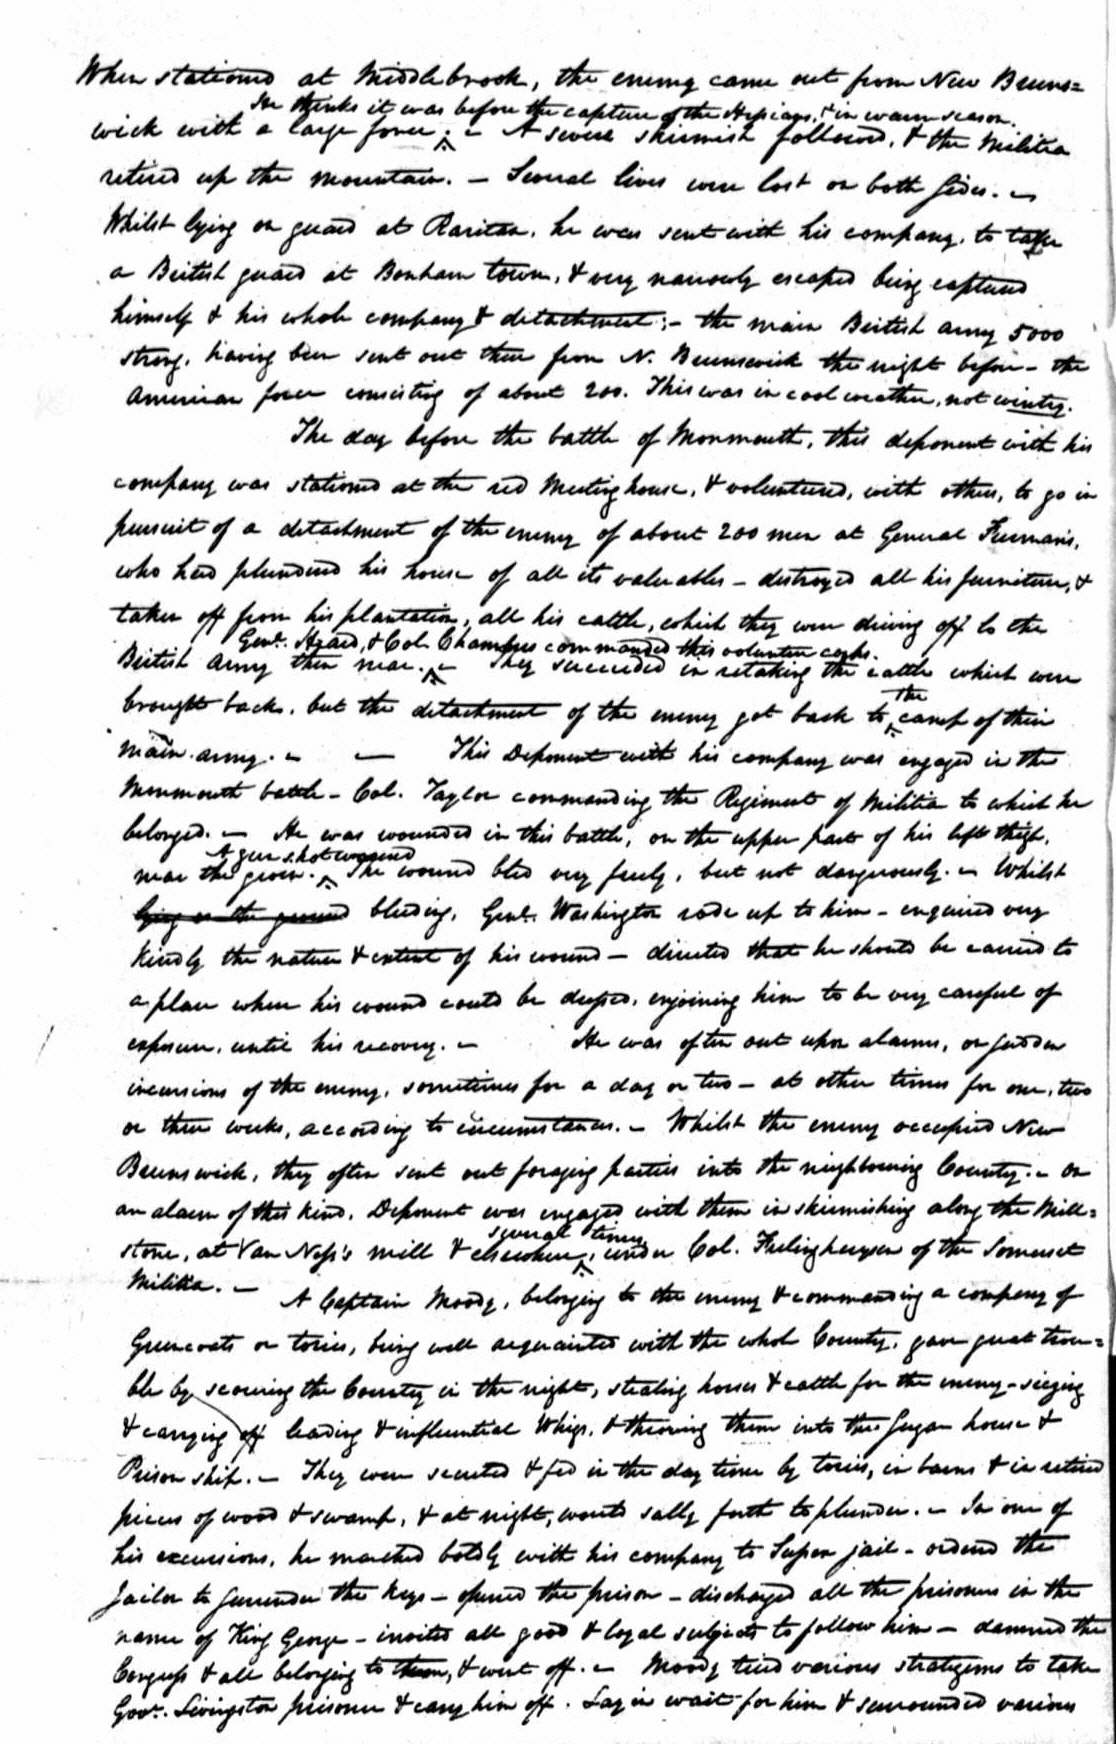 When stationed at Middlebrook, the enemy came out from New Bruns=
He thinks it was before the capture of the Hessians, & in warm season.
wick with a large force. ^ – A severe skirmish followed, & the Militia
retired up the mountain. – Several lives were lost on both sides. –
Whilst lying on guard at Raritan, he was sent with his company, to take
a British guard at Bonham town, & very narrowly escaped being captured
himself & his whole company & detachment; – the main British army 5000
strong, having been sent out there from N. Brunswick the night before – the
American force consisting of about 200. This was in cool weather, not wintry.
The day before the battle of Monmouth, this deponent with his
company was stationed at the red Meeting house, & volunteered, with others, to go in
pursuit of a detachment of the enemy of about 200 men at General Furmans,
who had plundered his house of all its valuables – destroyed all his furniture, &
taken off from his plantation, all his cattle, which they were driving off to the
Genl. Heard, & Col. Chambers commanded this volunteer corps.
British army then near. ^ – They succeeded in retaking the cattle which were
the
brought back, but the detachment of the enemy got back to ^ camp of their
main army. – – This Deponent with his company was engaged in the
Monmouth battle – Col. Taylor commanding the Regiment of Militia to which he
belonged. – He was wounded in this battle, on the upper part of his left thigh,
A gun shot wound
near the groin. ^ The wound bled very freely, but not dangerously. – Whilst
lying on the ground bleeding, Genl. Washington rode up to him – enquired very
kindly the nature & extent of his wound – directed that he should be carried to
a place where his wound could be dressed, enjoining him to be very careful of
exposure, until his recovery. – He was often out upon alarms, or sudden
incursions of the enemy, sometimes for a day or two – at other times for one, two
or three weeks, according to circumstances. – Whilst the enemy occupied New
Brunswick, they often sent out foraging parties into the neighbouring County. – On
an alarm of this kind, Deponent was engaged with them in skirmishing along the Mill=
several times
stone, at Van Ness's mill & elsewhere, ^ under Col. Frelinghuysen of the Somerset
Militia. – A Captain Moody, belonging to the enemy & commanding a company of
Greencoats or tories, being well acquainted with the whole County, gave great trou=
ble by scouring the County in the night, stealing horses & cattle for the enemy – siezing
& carrying off leading & influential Whigs, & throwing them into the Sugar house &
Prison ship. – They were secreted & fed in the day time by tories, in barns & in retired
pieces of wood & swamp, & at night, would sally forth to plunder. – In one of
his excursions, he marched boldly with his company to Sussex jail – ordered the
Jailor to surrender the keys – opened the prison – discharged all the prisoners in the
name of King George – invited all good & loyal subjects to follow him – damned the
Congress & all belonging to them, & went off. – Moody tried various stratagems to take
Govr. Livingston prisoner & carry him off. Lay in wait for him & surrounded various